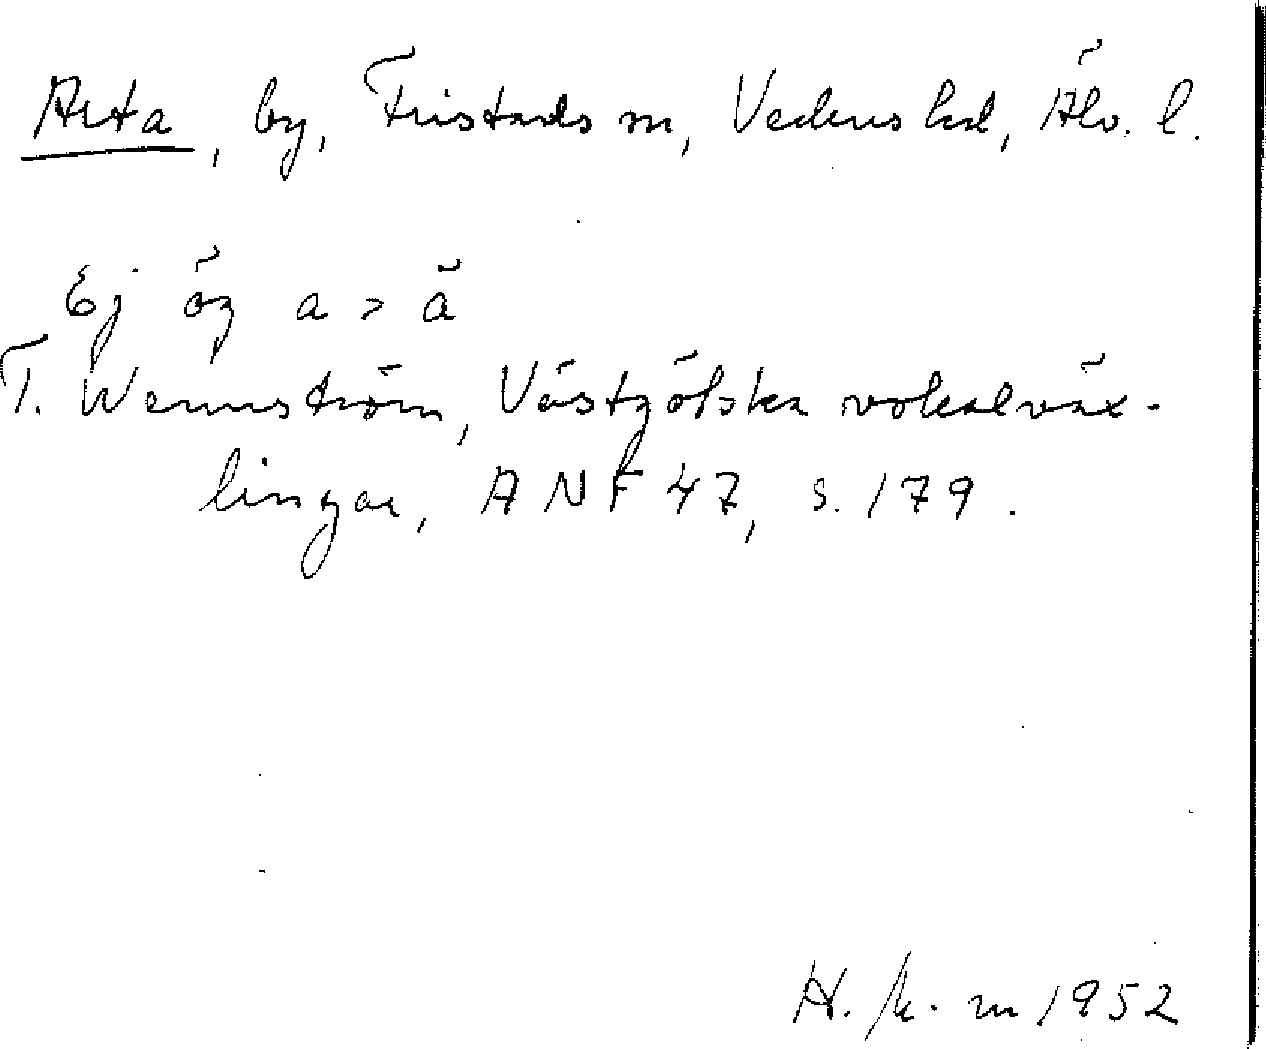 Arta, by, Fristads sn, Vedens hd, Älv. l.
Ej äg a > ä
T. Wennström, Västgötska vokalväx-
lingar, ANF 47, s. 179.
1952